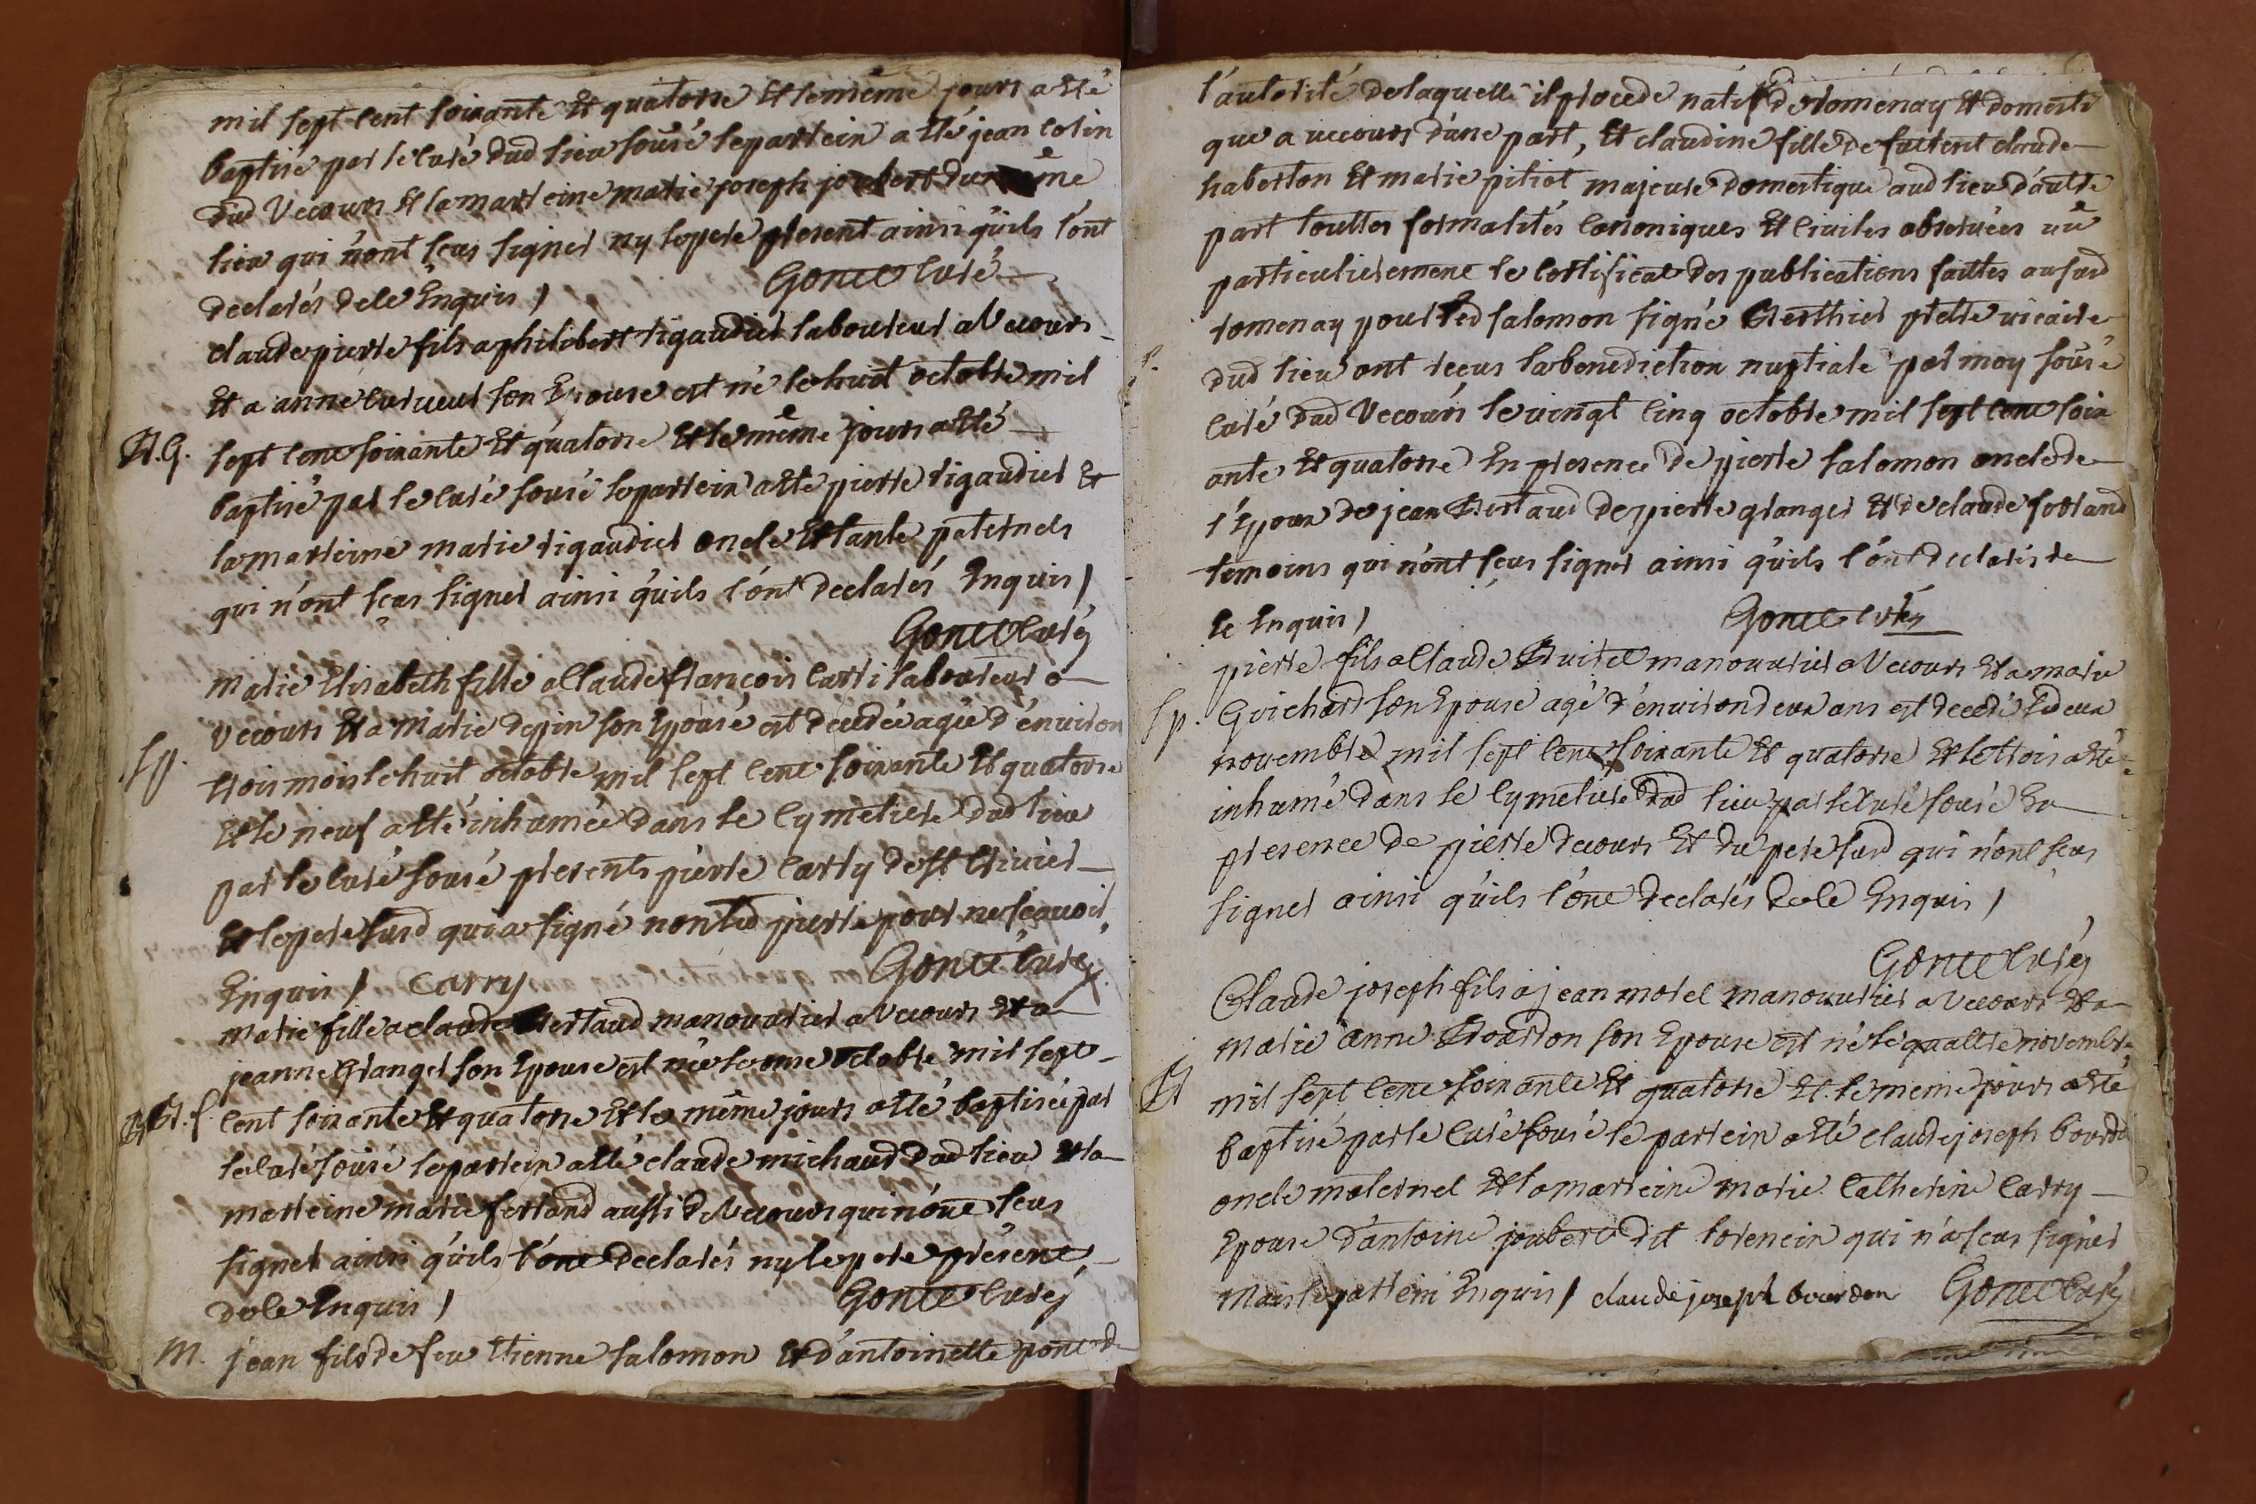 mil sept cent soixante et quatorze et le même jours a été
baptisé par le curé dud lieu sousé le parrein a été jean colin
dud Vecours et la marreine marie joseph joubert du même
lieu qui n'ont sçus signer ny le pere présent ainsi qu'ils l'ont
declarés de ce Enquis /
Gonce Curé
claude pierre fils a philibert rigaudier laboureur a Vecours
et a anne curveur son Epouse est né le huit octobre mil
Bt. G. sept cent soixante et quatorze et le même jours a été
baptisé par le curé sousé le parrein a été pierre rigaudier et
la marreine marie rigaudier oncle et tante paternels
qui n'ont sçus signer ainsi qu'ils l'ont declarés Enquis /
Gonce Curé
Marie Elisabeth fille a Claude françois Carri laboureur a
Vecours et a Marie depin son Epouse est decedée agée d'environ
Sp. trois mois le huit octobre mil sept cent soixante et quatorze
et le neuf a été inhumée dans le Cymetiere dud lieu
par le curé sousé présents pierre Carry de St trivier
et le pere susd qui a signé non led pierre pour ne sçavoir
Enquis / Carry Gonce Curé
Marie fille a claude Bertaud manouvrier a Vecours et a
jeanne Granger son Epouse est née le onze octobre mil sept
Bt. f. cent soixante et quatorze et le même jours a été baptisée par
le curé sousé le parrein a été claude michaud dud lieu et la
marreine marie ferrand aussi de Vecours qui n'ont sçus
signer ainsi qu'ils l'ont declarés ny le pere présent
de ce Enquis /
Gonce Curé
M. jean fils de feu Etienne salomon et d'antoinette poncet de
l'autorité de laquelle il procede natif de romenay et domesti
que a vecours d'une part, et claudine fille de furent claude
haberton et marie pitiot majeure domestique aud lieu d'autre
part touttes formalités canoniques et civiles observées vû
particulierement le certificat des publications faittes au susd
romenay pour led salomon signé Berthier prêtre vicaire
dud lieu ont reçus la benediction nuptiale par moy sousé
curé dud Vecours le vingt cinq octobre mil sept cent soix
ante et quatorze En presence de pierre salomon oncle de
l'Epoux de jean Bertaud de pierre granger et de claude ferrand
temoins qui n'ont sçus signer ainsi qu'ils l'ont declarés de
ce Enquis /
Gonce Curé
pierre fils a Claude manouvrier a Vecours et a marie
Sp. Guichard son Epouse agé d'environ deux ans est decedé le deux
novembre mil sept cent soixante et quatorze et le trois a été
inhumé dans le Cymetiere dud lieu par le curé sousé En
presence de pierre decours et du pere susd qui n'ont sçus
signer ainsi qu'ils l'ont declarés de ce Enquis /
Gonce Curé
Claude joseph fils a jean morel manouvrier a Vecours et a
Marie anne Bourdon son Epouse est né le quattre novembre
Bt mil sept cent soixante et quatorze et le meme jours a été
baptisé par le Curé sousé le parrein a été claude joseph bourdon
oncle maternel et la marreine marie Catherine Carry
Epouse d'antoine joubert dit lorenein qui n'a sçus signer
mais le parrein Enquis / claude joseph bourdon Gonce Curé